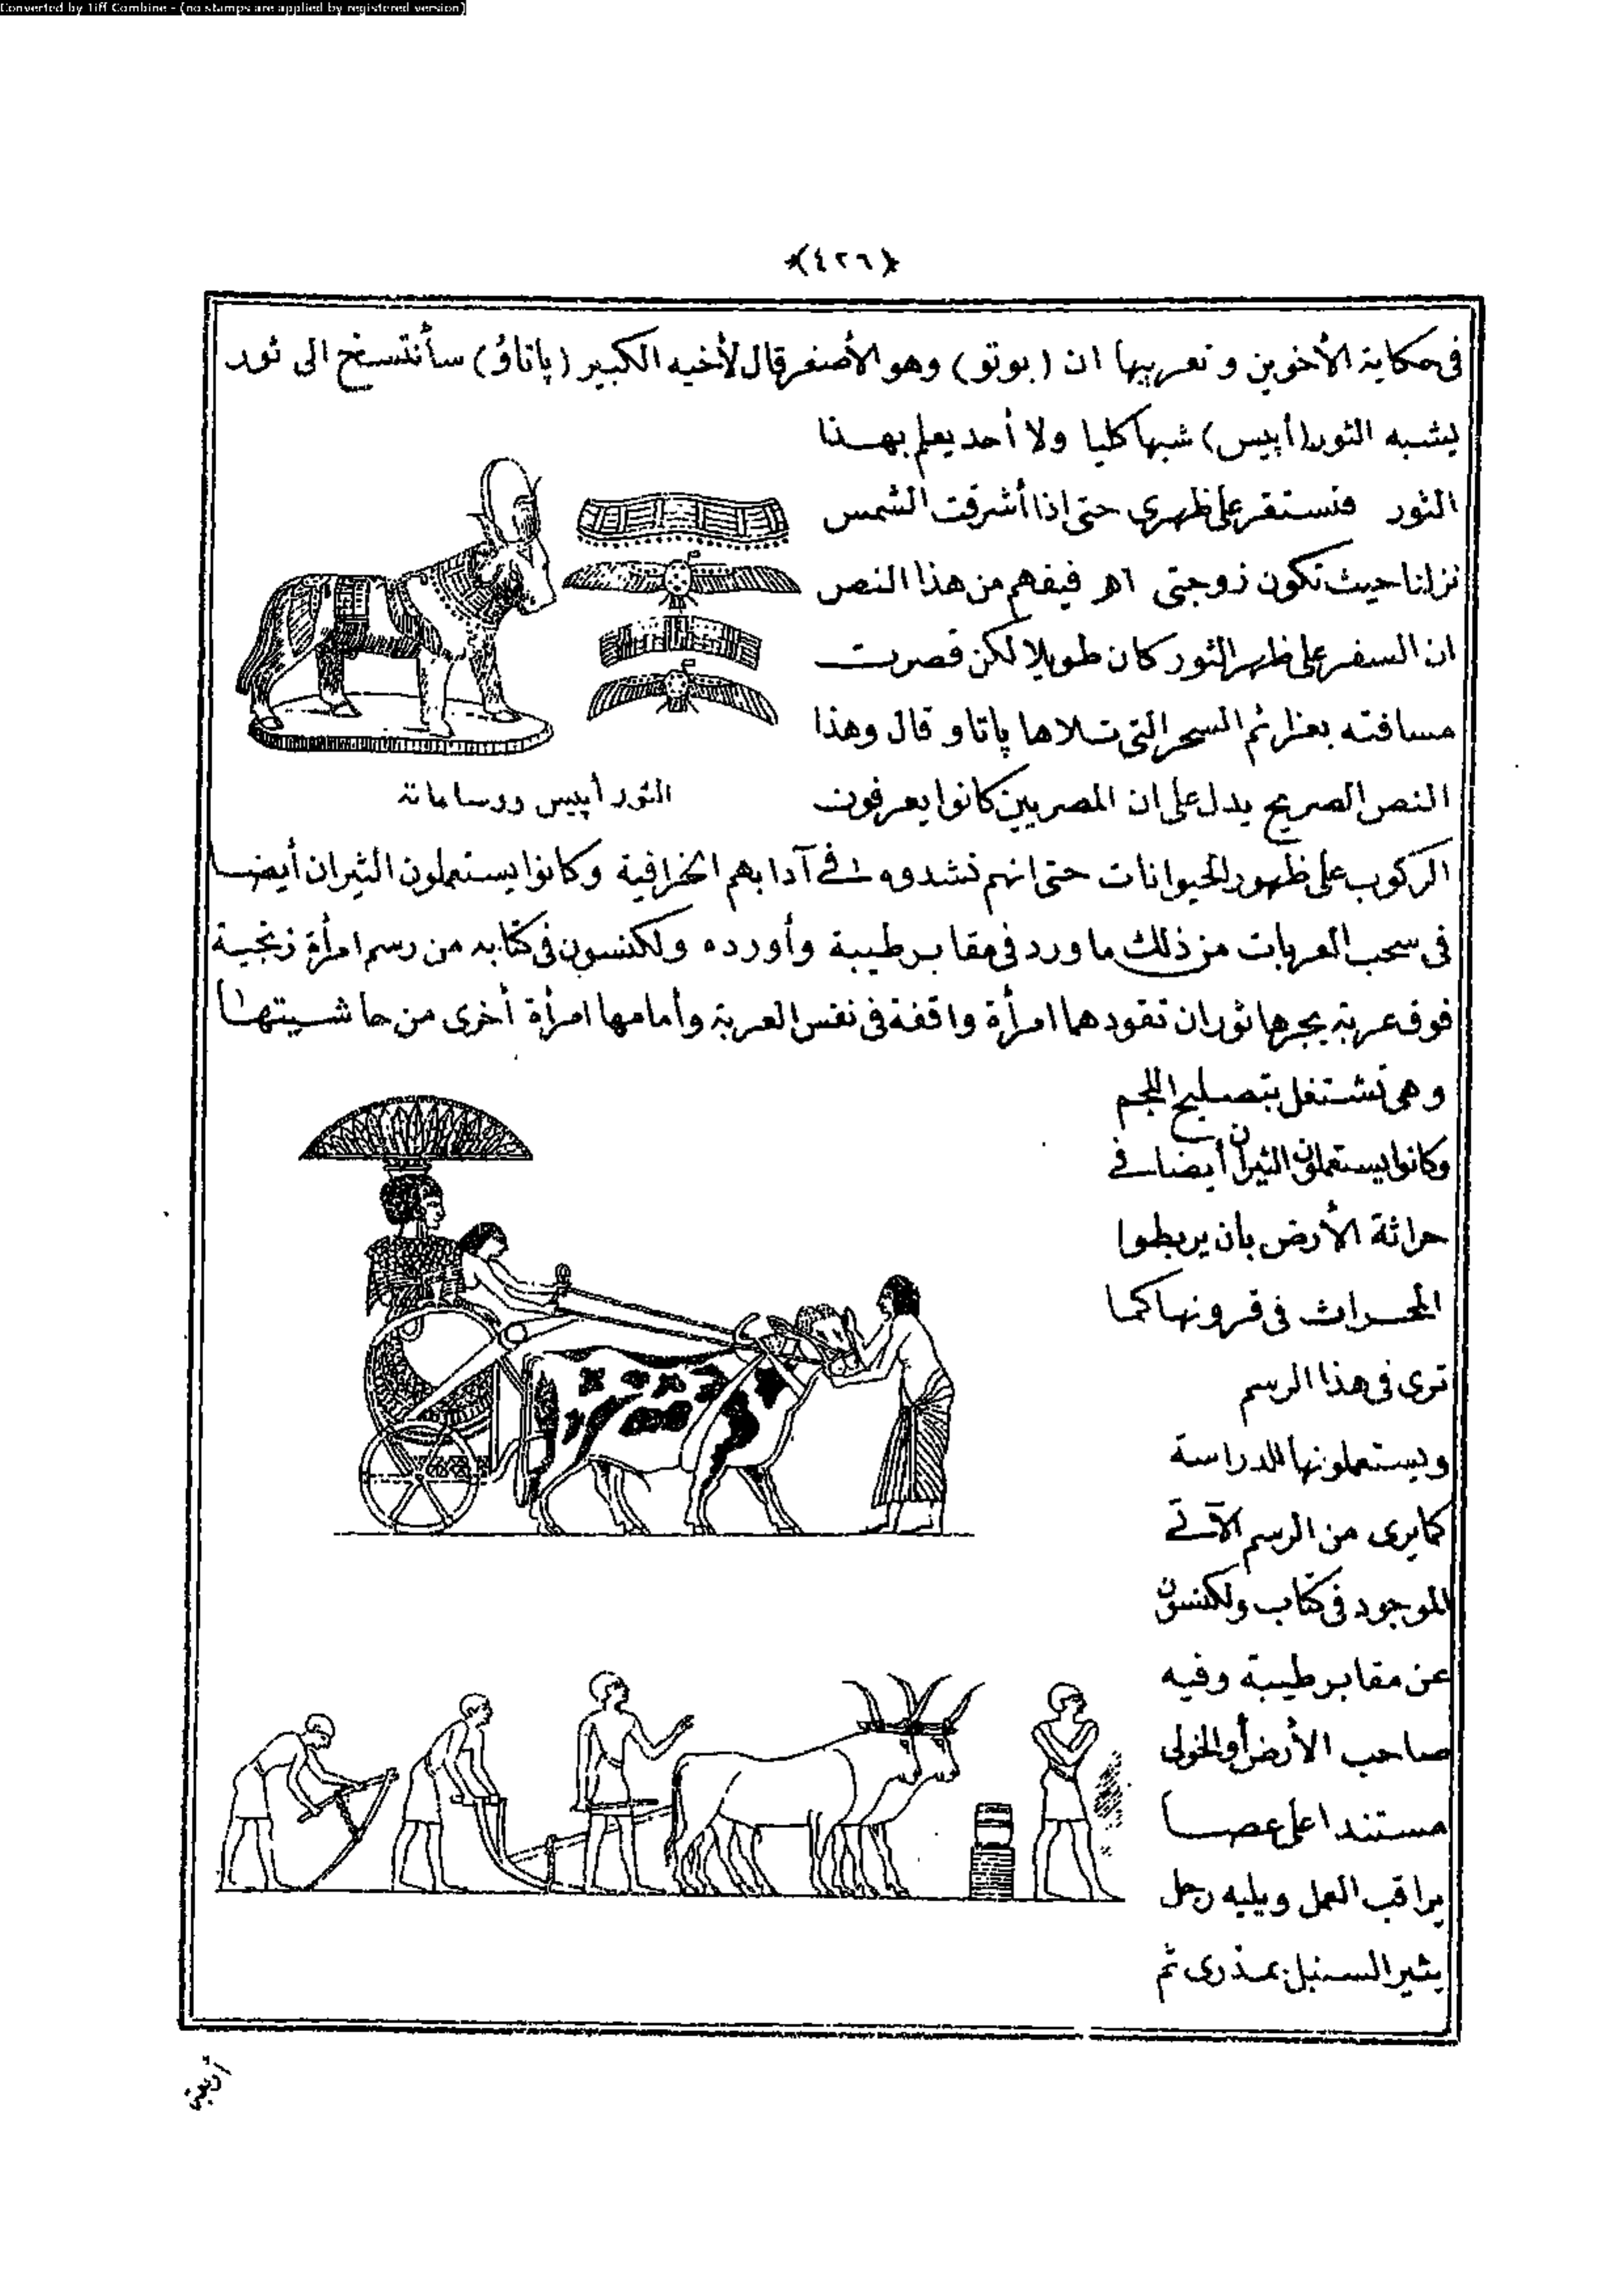 Converted by Tiff Combine - (no stamps are applied by registered version)
﴿٤٢٦﴾
فى حكاية الأخوين وتعريبها ان (بوتو) وهو الأصغر قال لأخيه الكبير (پاتاؤ) سأنتسخ الى ثور
يشبه الثور (أپيس) شبها كليا ولا أحد يعلم بهذا
الثور فنستقر على ظهرى حتى اذا أشرقت الشمس
نزلنا حيث تكون زوجتى اهـ فيفهم من هذا النص
ان السفر على ظهر الثور كان طويلا لكن قصرت
مسافته بعزائم السحر التى تلاها پاتاو قال وهذا
النص الصريح يدل على ان المصريين كانوا يعرفون
الثور أپيس ووساماته
الركوب على ظهور الحيوانات حتى انهم نشدوه فى آدابهم الخرافية وكانوا يستعملون الثيران أيضا
فى سحب العربات من ذلك ما ورد فى مقابر طيبة وأورده ولكنسون فى كتابه من رسم امرأة زنجية
فوق عربة يجرها ثوران تقودهما امرأة واقفة فى نفس العربة وأمامها امرأة أخرى من حاشيتها
وهى تشتغل بتصليح اللجم
وكانوا يستعملون الثيران أيضا فى
حراثة الأرض بان يربطوا
المحراث فى قرونها كما
ترى فى هذا الرسم
ويستعملونها للدراسة
كما يرى من الرسم الآتى
الموجود فى كتاب ولكنسون
عن مقابر طيبة وفيه
صاحب الأرض أو الخولى
مستندا على عصا
يراقب العمل ويليه رجل
يثير السنبل بمذرى ثم